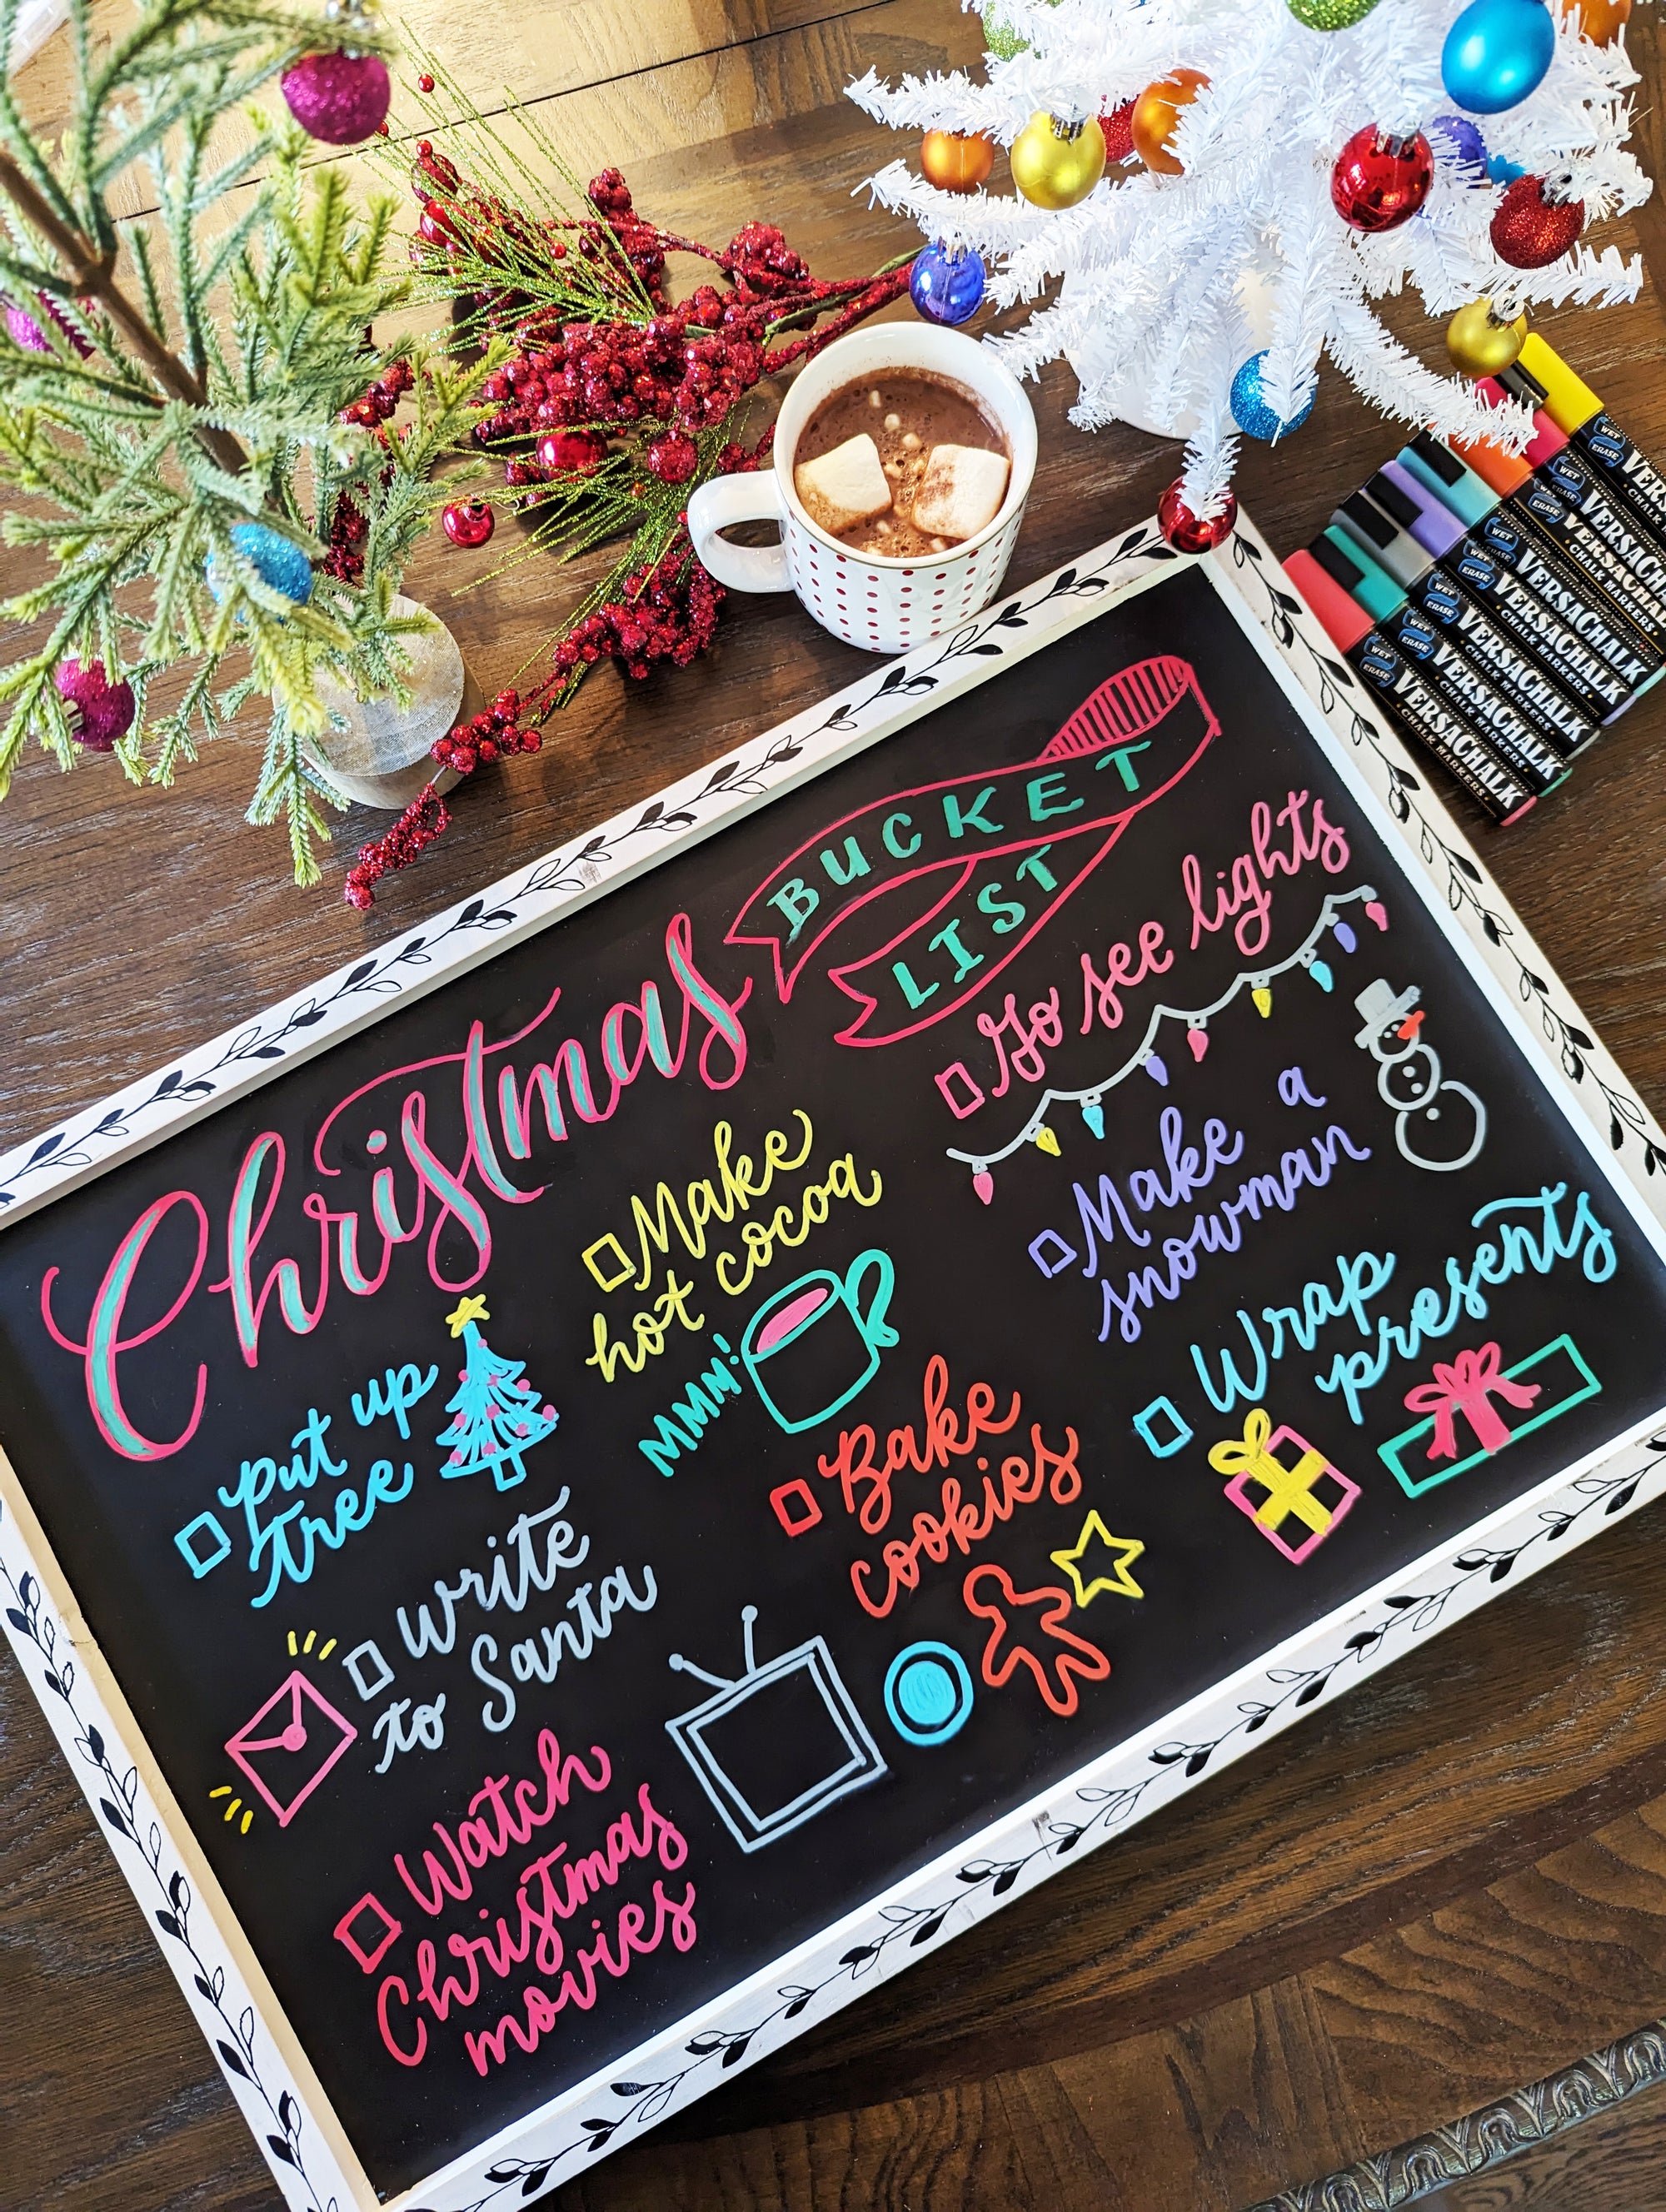 Christmas
BUCKET
LIST
put up
tree
write
to Santa
Watch
Christmas
movies
Make
hot cocoa
MMM!
Bake
cookies
Go see lights
Make a
snowman
Wrap
presents
WET
ERASE
VERSACHALK
CHALK MARKERS
WET
ERASE
VERSACHALK
CHALK MARKERS
WET
ERASE
VERSACHALK
CHALK MARKERS
WET
ERASE
VERSACHALK
CHALK MARKERS
WET
ERASE
VERSACHALK
CHALK MARKERS